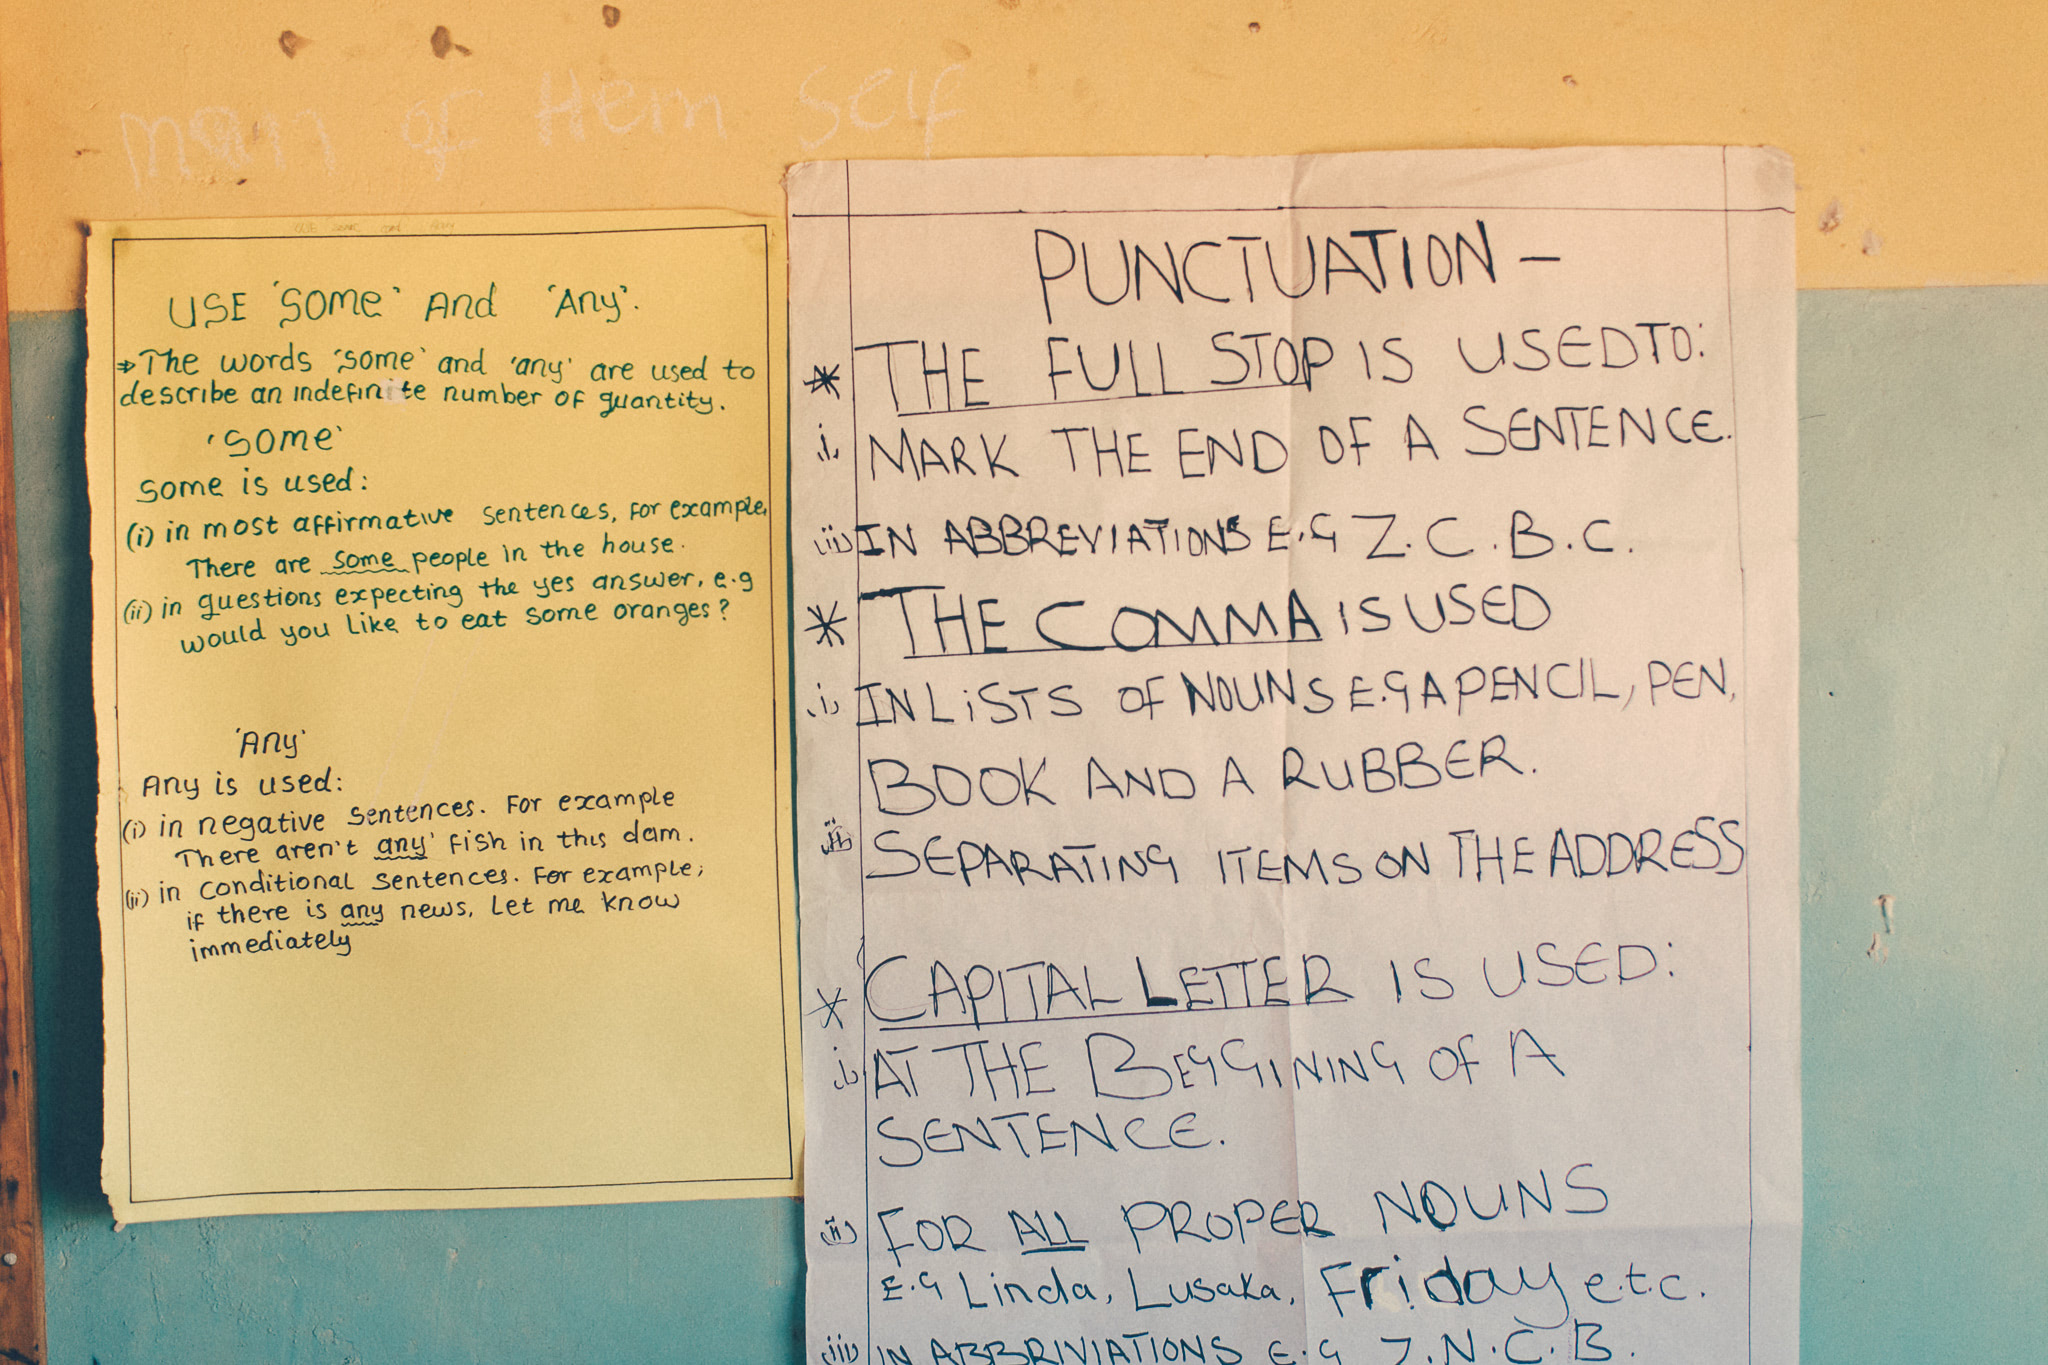 man of Hem self
USE 'SOME' And 'Any'.
⇒ The words 'some' and 'any' are used to
describe an indefinite number of quantity.
'SOME'
Some is used:
(i) in most affirmative sentences, for example,
There are some people in the house.
(ii) in questions expecting the yes answer, e.g
would you like to eat some oranges?
'Any'
Any is used:
(i) in negative sentences. For example
There aren't any' fish in this dam.
(ii) in conditional sentences. For example;
if there is any news, let me know
immediately
PUNCTUATION -
* THE FULL STOP IS USED TO:
(i) MARK THE END OF A SENTENCE.
(ii) IN ABBREVIATIONS E.G Z.C.B.C.
* THE COMMA IS USED
(i) IN LISTS OF NOUNS E.G A PENCIL, PEN,
BOOK AND A RUBBER.
(ii) SEPARATING ITEMS ON THE ADDRESS
* CAPITAL LETTER IS USED:
(i) AT THE BEGGINING OF A
SENTENCE.
(ii) FOR ALL PROPER NOUNS
E.G Linda, Lusaka, Friday e.t.c.
(iii) IN ABBRIVIATIONS E.G Z.N.C.B.